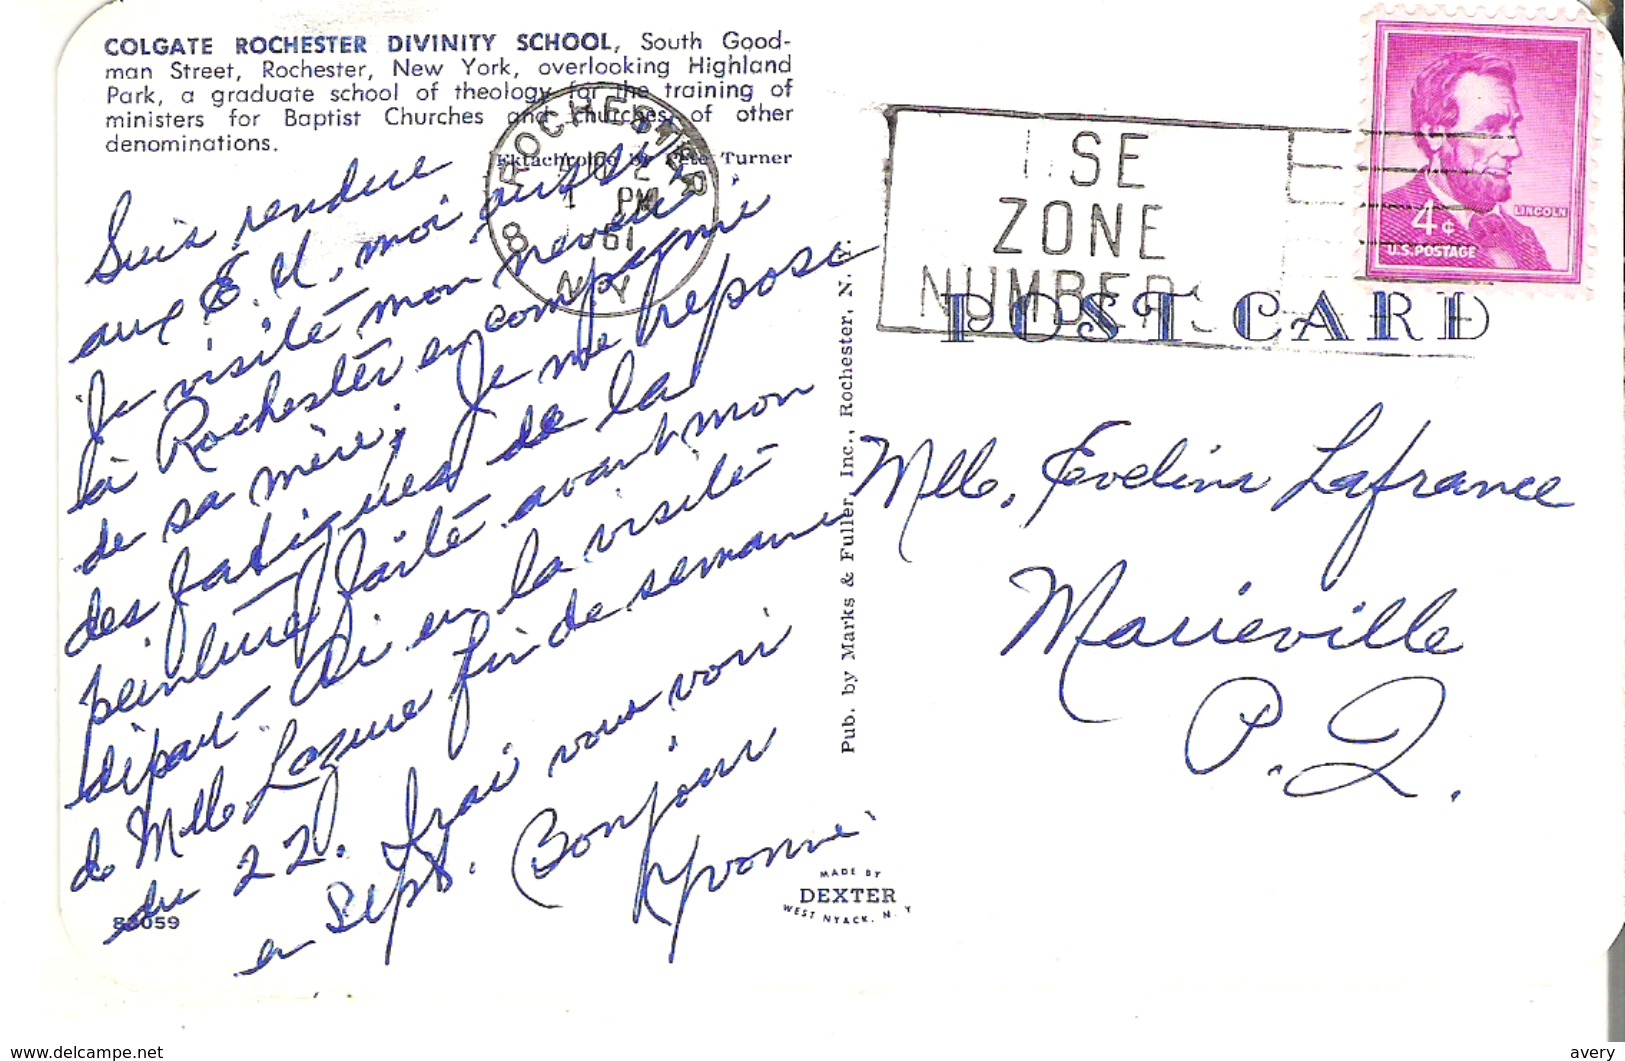 COLGATE ROCHESTER DIVINITY SCHOOL, South Good-
man Street, Rochester, New York, overlooking Highland
Park, a graduate school of theology for the training of
ministers for Baptist Churches and churches of other
denominations.
Ektachrome by Pete Turner
ROCHESTER
8
2
PM
1961
N.Y.
USE
ZONE
NUMBERS
4¢
LINCOLN
U.S. POSTAGE
POST CARD
Suis rendue
aux E.U. moi aussi
Je visite mon neveu
à Rochester en compagnie
de sa mère; Je me repose
des fatigues de la
peinture faite avant mon
départ - Ai eu la visite
de Mlle Lazure fin de semaine
du 22. Irai vous voir
en Sept. Bonjour
Yvonne
Mlle. Evelina Lafrance
Marieville
P.Q.
Pub. by Marks & Fuller, Inc., Rochester, N. Y.
MADE BY
DEXTER
WEST NYACK, N. Y
www.delcampe.net
avery